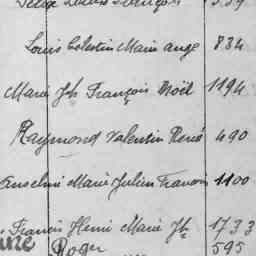 Louis Celestin Marie ange 834
Marie Jh François Noël 1194
Raymond Valentin René 490
Anselme Marie Julien 1100
Francis Henri Marie Jh 1733
Roger 595